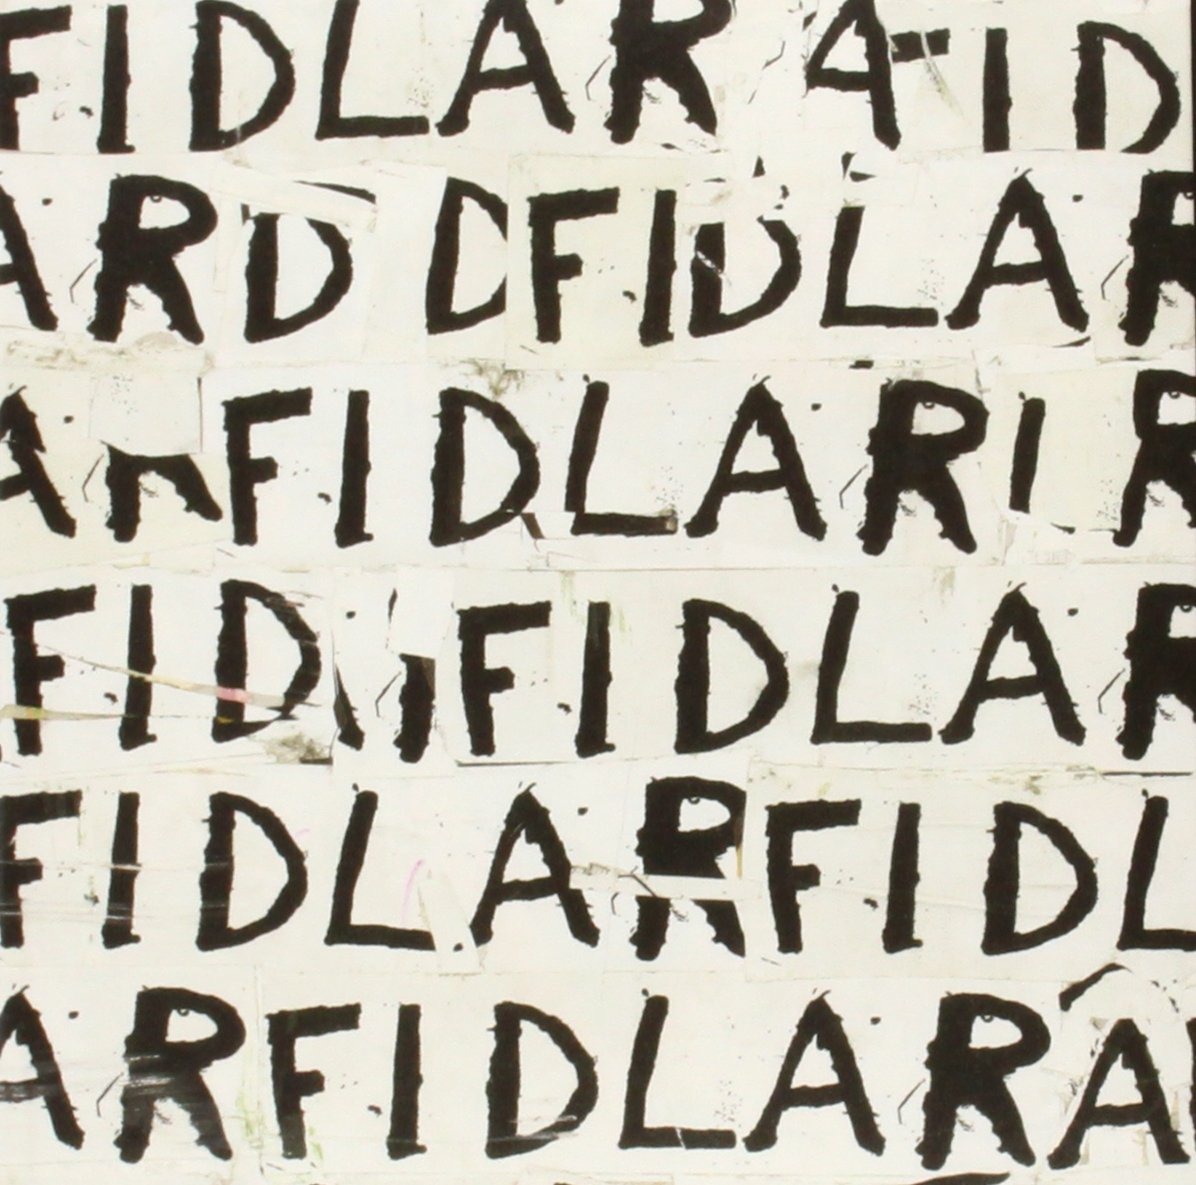 FIDLAR A ID
ARD DFIDLAR
ARFIDLARIR
FID FIDLAR
FIDLARFIDL
ARFIDLARA